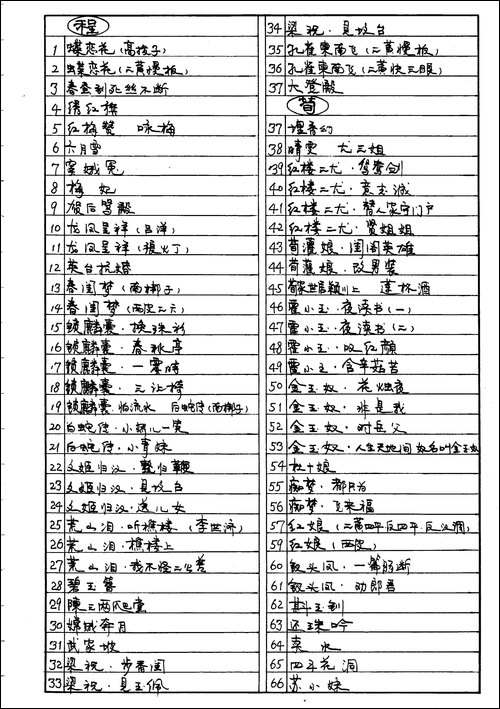 程
1 蝶恋花（高拨子）
2 蝶恋花（二黄慢板）
3 春蚕到死丝不断
4 绣红旗
5 红梅赞 咏梅
6 六月雪
7 窦娥冤
8 梅妃
9 贺后骂殿
10 龙凤呈祥（吕洋）
11 龙凤呈祥（張火丁）
12 英台抗婚
13 春闺梦（南梆子）
14 春闺梦（西皮二六）
15 锁麟囊·换珠衫
16 锁麟囊·春秋亭
17 锁麟囊·一霎時
18 锁麟囊·三让椅
19 锁麟囊·怕流水 白蛇传（南梆子）
20 白蛇传·小娇儿一笑
21 白蛇传·小青妹
22 文姬归汉·整归鞭
23 文姬归汉·見坟台
24 文姬归汉·送儿女
25 荒山泪·听樵楼（李世济）
26 荒山泪·樵楼上
27 荒山泪·我不怪二公差
28 碧玉簪
29 陳三两爬堂
30 嫦娥奔月
31 武家坡
32 梁祝·步香闺
33 梁祝·見玉佩
34 梁祝·見坟台
35 孔雀東南飞（二黄慢板）
36 孔雀東南飞（二黄快三眼）
37 大登殿
荀
37 埋香幻
38 晴雯 尤三姐
39 红楼二尤·鸳鸯剑
40 红楼二尤·
41 红楼二尤·替人家守门户
42 红楼二尤·賢姐姐
43 荀灌娘·闺阁英雄
44 荀灌娘·改男装
45 敬世恩颖川上 連杯酒
46 霍小玉·夜读书（一）
47 霍小玉·夜读书（二）
48 霍小玉·叹红颜
49 霍小玉·含辛茹苦
50 金玉奴·花烛夜
51 金玉奴·非是我
52 金玉奴·
53 金玉奴·人生天地间 奴名叫金玉奴
54 杜十娘
55 痴梦·都只为
56 痴梦·飞来福
57 红娘（二黄四平反四平 反汉调）
59 红娘（西皮）
60 钗头凤·一
61 钗头凤·劝郎君
62 斟玉钏
63 还珠吟
64 卖水
65 四平花洞
66 苏小妹